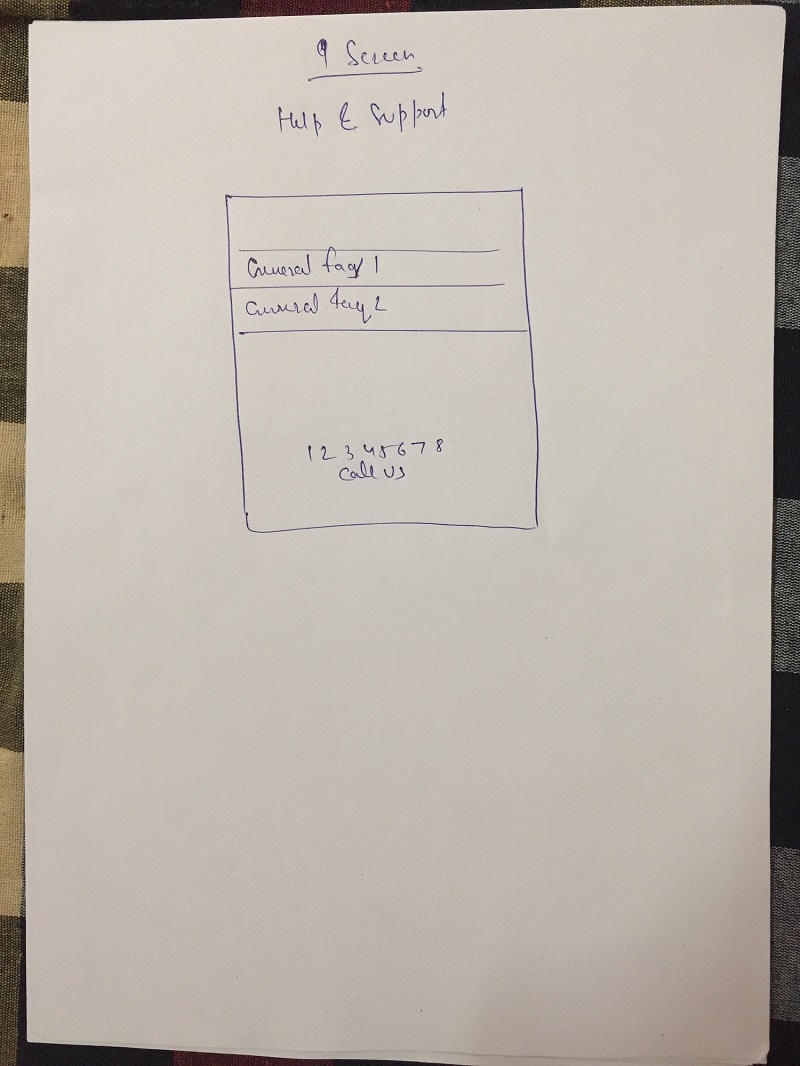 9 Screen
Help & Support
General faq 1
General faq 2
12345678
Call us